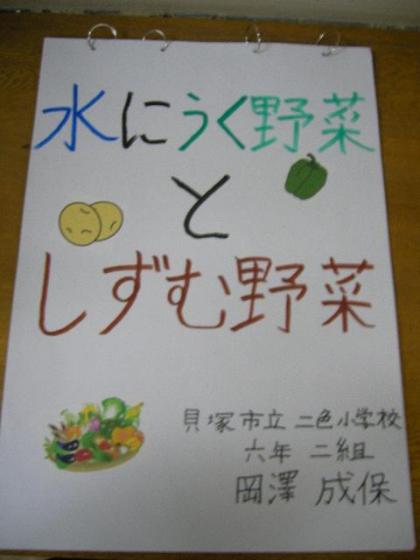 水にうく野菜
と
しずむ野菜
貝塚市立 二色小学校
六年 二組
岡澤 成保